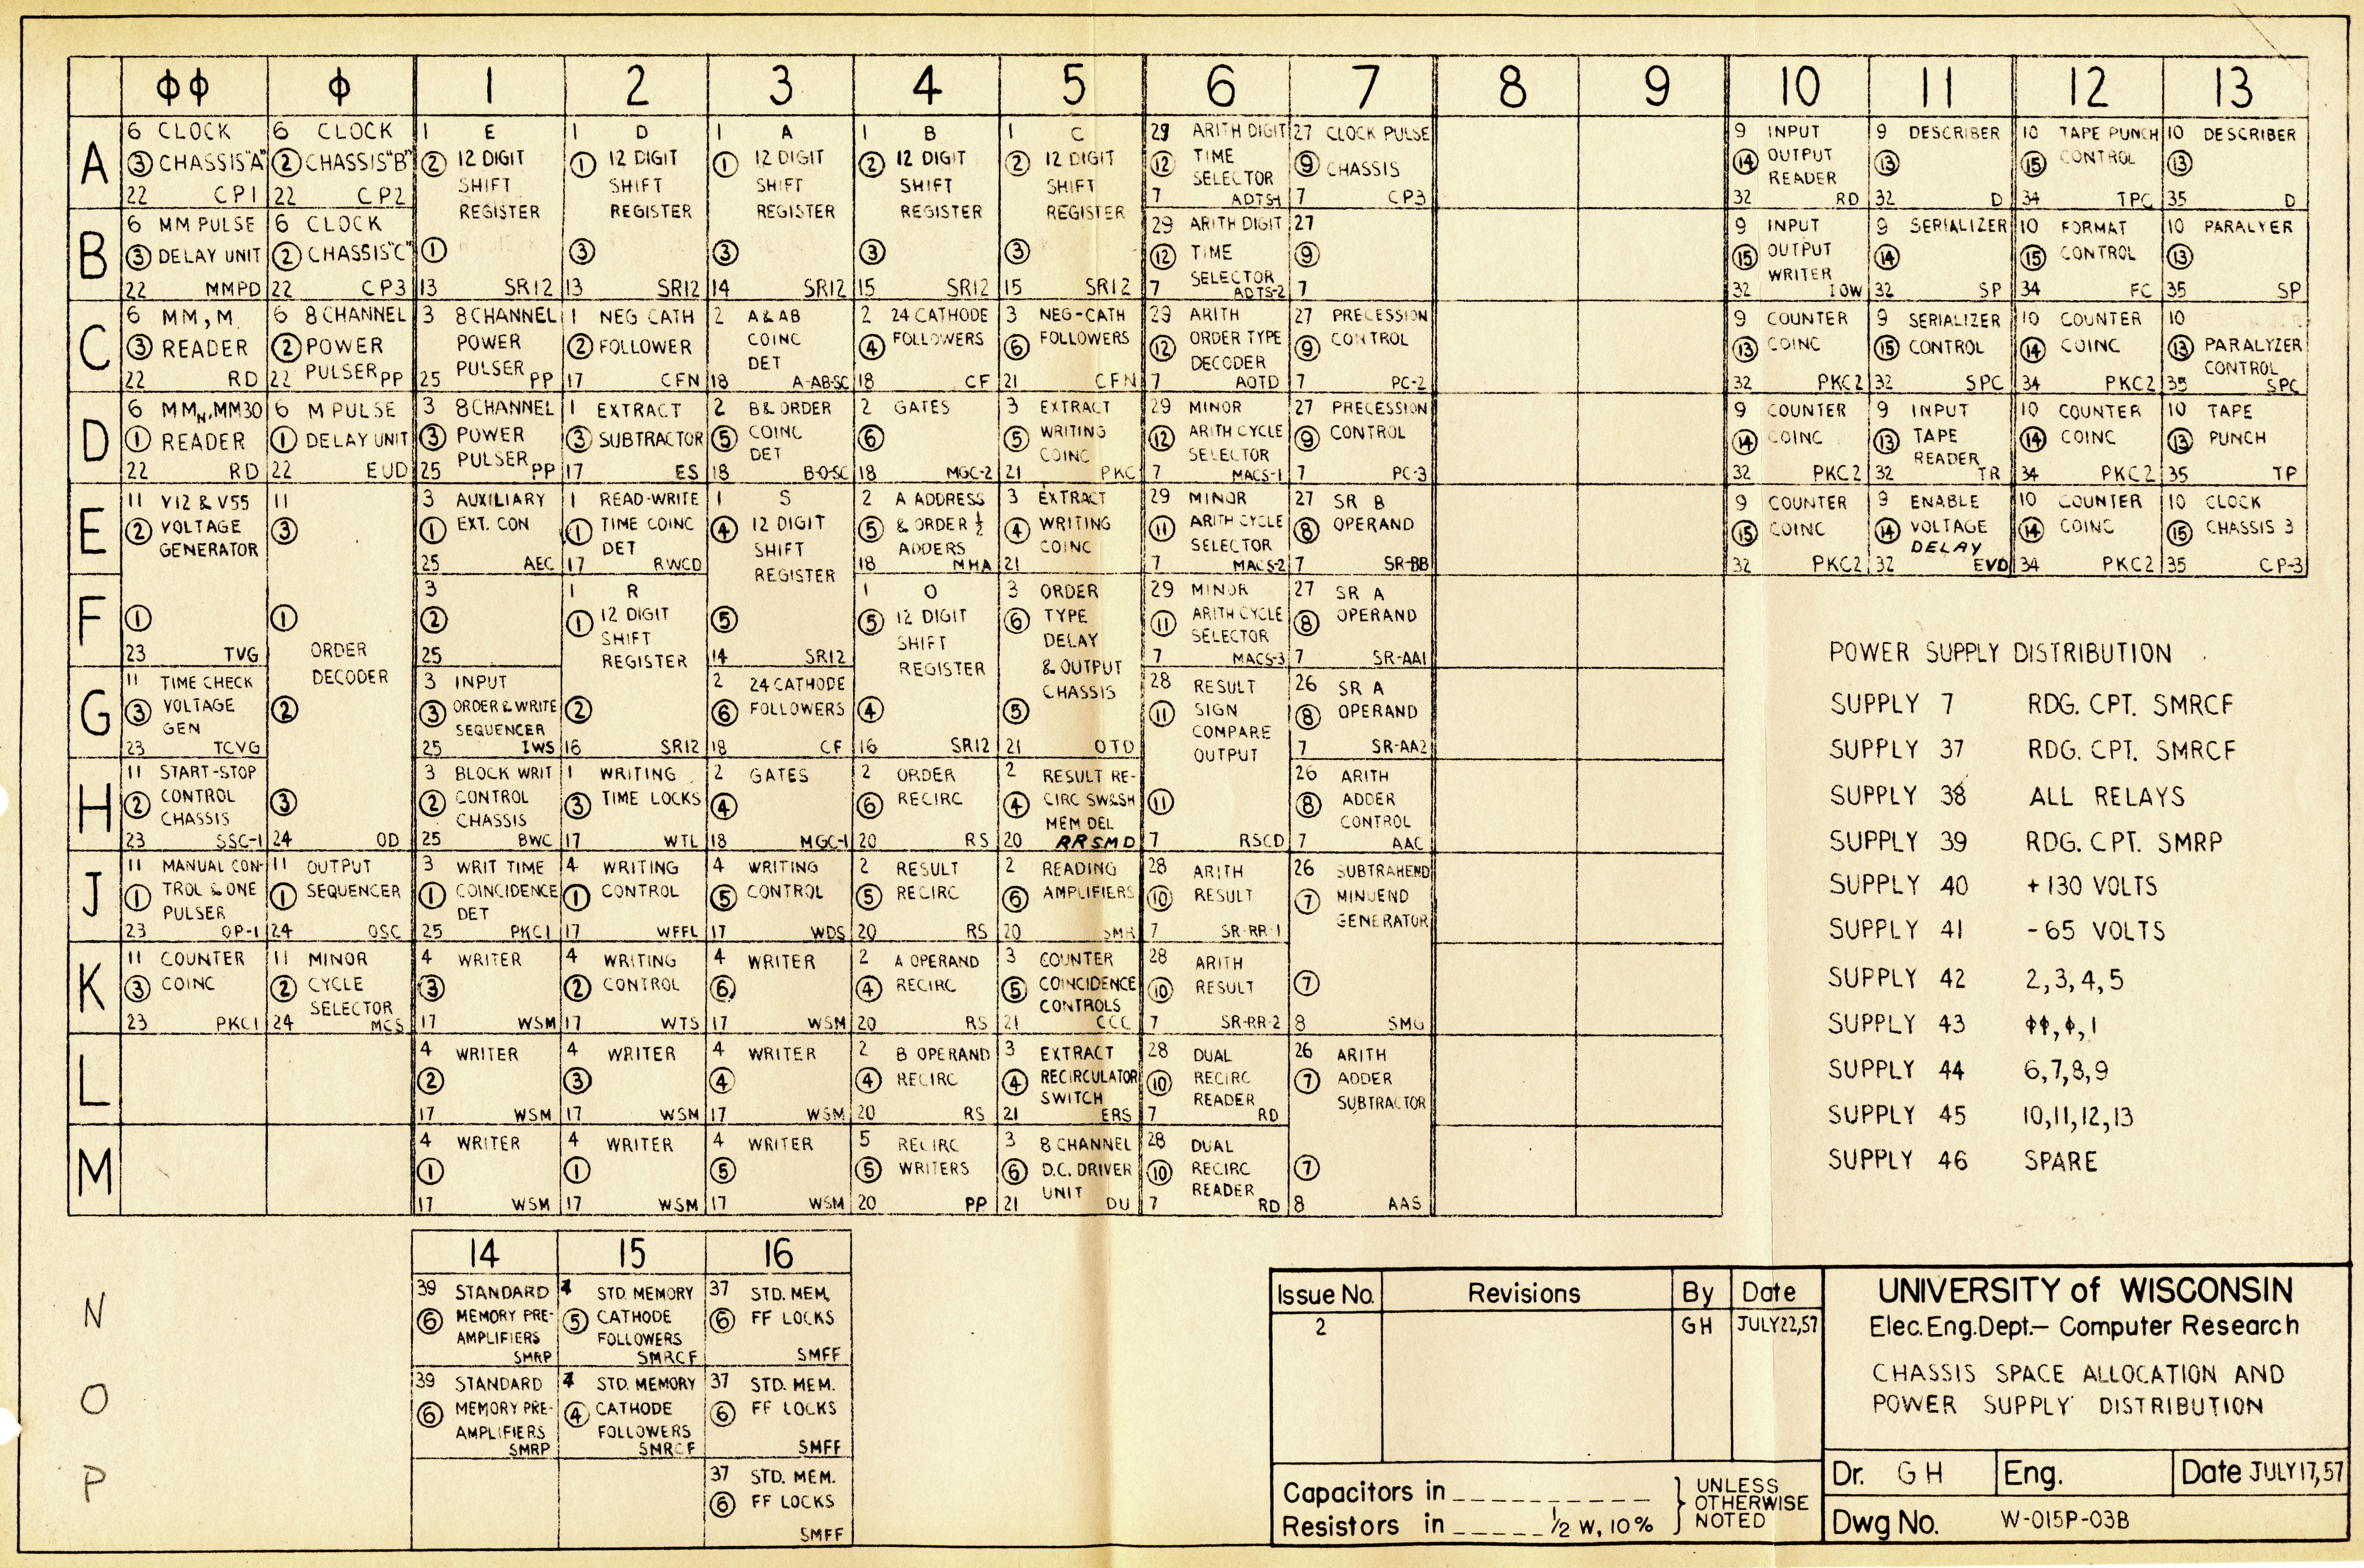 ΦΦ Φ 1 2 3 4 5 6 7 8 9 10 11 12 13
A
6 CLOCK
③ CHASSIS "A"
22 CP1
6 CLOCK
② CHASSIS "B"
22 CP2
1 E
② 12 DIGIT
SHIFT
REGISTER
①
13 SR12
1 D
① 12 DIGIT
SHIFT
REGISTER
③
13 SR12
1 A
① 12 DIGIT
SHIFT
REGISTER
③
14 SR12
1 B
② 12 DIGIT
SHIFT
REGISTER
③
15 SR12
1 C
② 12 DIGIT
SHIFT
REGISTER
③
15 SR12
29 ARITH DIGIT
⑫ TIME
SELECTOR
7 ADTS-1
27 CLOCK PULSE
⑨ CHASSIS
7 CP3
9 INPUT
⑭ OUTPUT
READER
32 RD
9 DESCRIBER
⑬
32 D
10 TAPE PUNCH
⑮ CONTROL
34 TPC
10 DESCRIBER
⑬
35 D
B
6 MM PULSE
③ DELAY UNIT
22 MMPD
6 CLOCK
② CHASSIS "C"
22 CP3
29 ARITH DIGIT
⑫ TIME
SELECTOR
7 ADTS-2
27
⑨
7
9 INPUT
⑮ OUTPUT
WRITER
32 IOW
9 SERIALIZER
⑭
32 SP
10 FORMAT
⑮ CONTROL
34 FC
10 PARALYER
⑬
35 SP
C
6 MM, M
③ READER
22 RD
6 8 CHANNEL
② POWER
PULSER
22 PP
3 8 CHANNEL
POWER
PULSER
25 PP
1 NEG CATH
② FOLLOWER
17 CFN
2 A & AB
COINC
DET
18 A-AB-SC
2 24 CATHODE
④ FOLLOWERS
18 CF
3 NEG-CATH
⑥ FOLLOWERS
21 CFN
29 ARITH
⑫ ORDER TYPE
DECODER
7 AOTD
27 PRECESSION
⑨ CONTROL
7 PC-2
9 COUNTER
⑬ COINC
32 PKC2
9 SERIALIZER
⑮ CONTROL
32 SPC
10 COUNTER
⑭ COINC
34 PKC2
10
⑬ PARALYZER
CONTROL
35 SPC
D
6 MMN, MM30
① READER
22 RD
6 M PULSE
① DELAY UNIT
22 EUD
3 8 CHANNEL
③ POWER
PULSER
25 PP
1 EXTRACT
③ SUBTRACTOR
17 ES
2 B & ORDER
⑤ COINC
DET
18 B-O-SC
2 GATES
⑥
18 MGC-2
3 EXTRACT
⑤ WRITING
COINC
21 PKC
29 MINOR
⑫ ARITH CYCLE
SELECTOR
7 MACS-1
27 PRECESSION
⑨ CONTROL
7 PC-3
9 COUNTER
⑭ COINC
32 PKC2
9 INPUT
⑬ TAPE
READER
32 TR
10 COUNTER
⑭ COINC
34 PKC2
10 TAPE
⑬ PUNCH
35 TP
E
11 V12 & V55
② VOLTAGE
GENERATOR
①
23 TVG
11
③
①
ORDER
DECODER
②
③
24 OD
3 AUXILIARY
① EXT. CON
25 AEC
1 READ-WRITE
① TIME COINC
DET
17 RWCD
1 S
④ 12 DIGIT
SHIFT
REGISTER
⑤
14 SR12
2 A ADDRESS
⑤ & ORDER ½
ADDERS
18 MHA
3 EXTRACT
④ WRITING
COINC
21
29 MINOR
⑪ ARITH CYCLE
SELECTOR
7 MACS-2
27 SR B
⑧ OPERAND
7 SR-BB
9 COUNTER
⑮ COINC
32 PKC2
9 ENABLE
⑭ VOLTAGE
DELAY
32 EVD
10 COUNTER
⑭ COINC
34 PKC2
10 CLOCK
⑮ CHASSIS 3
35 CP-3
F
3
②
25
1 R
① 12 DIGIT
SHIFT
REGISTER
②
16 SR12
1 O
⑤ 12 DIGIT
SHIFT
REGISTER
④
16 SR12
3 ORDER
⑥ TYPE
DELAY
& OUTPUT
CHASSIS
⑤
21 OTD
29 MINOR
⑪ ARITH CYCLE
SELECTOR
7 MACS-3
27 SR A
⑧ OPERAND
7 SR-AA1
G
11 TIME CHECK
③ VOLTAGE
GEN
23 TCVG
3 INPUT
③ ORDER & WRITE
SEQUENCER
25 IWS
2 24 CATHODE
⑥ FOLLOWERS
18 CF
28 RESULT
⑪ SIGN
COMPARE
OUTPUT
⑪
7 RSCD
26 SR A
⑧ OPERAND
7 SR-AA2
H
11 START-STOP
② CONTROL
CHASSIS
23 SSC-1
3 BLOCK WRIT
② CONTROL
CHASSIS
25 BWC
1 WRITING
③ TIME LOCKS
17 WTL
2 GATES
④
18 MGC-1
2 ORDER
⑥ RECIRC
20 RS
2 RESULT RE-
④ CIRC SW&SH
MEM DEL
20 RRSMD
26 ARITH
⑧ ADDER
CONTROL
7 AAC
J
11 MANUAL CON-
① TROL & ONE
PULSER
23 OP-1
11 OUTPUT
① SEQUENCER
24 OSC
3 WRIT TIME
① COINCIDENCE
DET
25 PKC1
4 WRITING
① CONTROL
17 WFFL
4 WRITING
⑤ CONTROL
17 WDS
2 RESULT
⑤ RECIRC
20 RS
2 READING
⑥ AMPLIFIERS
20 SMR
28 ARITH
⑩ RESULT
7 SR-RR-1
26 SUBTRAHEND
⑦ MINUEND
GENERATOR
⑦
8 SMG
K
11 COUNTER
③ COINC
23 PKC1
11 MINOR
② CYCLE
SELECTOR
24 MCS
4 WRITER
③
17 WSM
4 WRITING
② CONTROL
17 WTS
4 WRITER
⑥
17 WSM
2 A OPERAND
④ RECIRC
20 RS
3 COUNTER
⑤ COINCIDENCE
CONTROLS
21 CCC
28 ARITH
⑩ RESULT
7 SR-RR-2
L
4 WRITER
②
17 WSM
4 WRITER
③
17 WSM
4 WRITER
④
17 WSM
2 B OPERAND
④ RECIRC
20 RS
3 EXTRACT
④ RECIRCULATOR
SWITCH
21 ERS
28 DUAL
⑩ RECIRC
READER
7 RD
26 ARITH
⑦ ADDER
SUBTRACTOR
⑦
8 AAS
M
4 WRITER
①
17 WSM
4 WRITER
①
17 WSM
4 WRITER
⑤
17 WSM
5 RECIRC
⑤ WRITERS
20 PP
3 8 CHANNEL
⑥ D.C. DRIVER
UNIT
21 DU
28 DUAL
⑩ RECIRC
READER
7 RD
POWER SUPPLY DISTRIBUTION
SUPPLY 7 RDG. CPT. SMRCF
SUPPLY 37 RDG. CPT. SMRCF
SUPPLY 38 ALL RELAYS
SUPPLY 39 RDG. CPT. SMRP
SUPPLY 40 +130 VOLTS
SUPPLY 41 -65 VOLTS
SUPPLY 42 2,3,4,5
SUPPLY 43 ΦΦ,Φ,1
SUPPLY 44 6,7,8,9
SUPPLY 45 10,11,12,13
SUPPLY 46 SPARE
14 15 16
N
39 STANDARD
⑥ MEMORY PRE-
AMPLIFIERS
SMRP
STD. MEMORY
⑤ CATHODE
FOLLOWERS
SMRCF
37 STD. MEM.
⑥ FF LOCKS
SMFF
O
39 STANDARD
⑥ MEMORY PRE-
AMPLIFIERS
SMRP
STD. MEMORY
④ CATHODE
FOLLOWERS
SMRCF
37 STD. MEM.
⑥ FF LOCKS
SMFF
P
37 STD. MEM.
⑥ FF LOCKS
SMFF
Issue No. Revisions By Date
2 GH JULY 22, 57
Capacitors in
Resistors in ½ W, 10%
UNLESS
OTHERWISE
NOTED
UNIVERSITY of WISCONSIN
Elec. Eng. Dept.— Computer Research
CHASSIS SPACE ALLOCATION AND
POWER SUPPLY DISTRIBUTION
Dr. GH Eng. Date JULY 17, 57
Dwg No. W-015P-03B